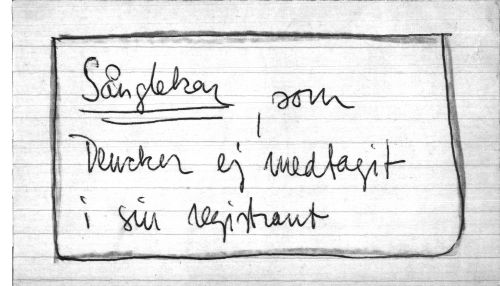 Sånglekar, som
Dencker ej medtagit
i sin registrant